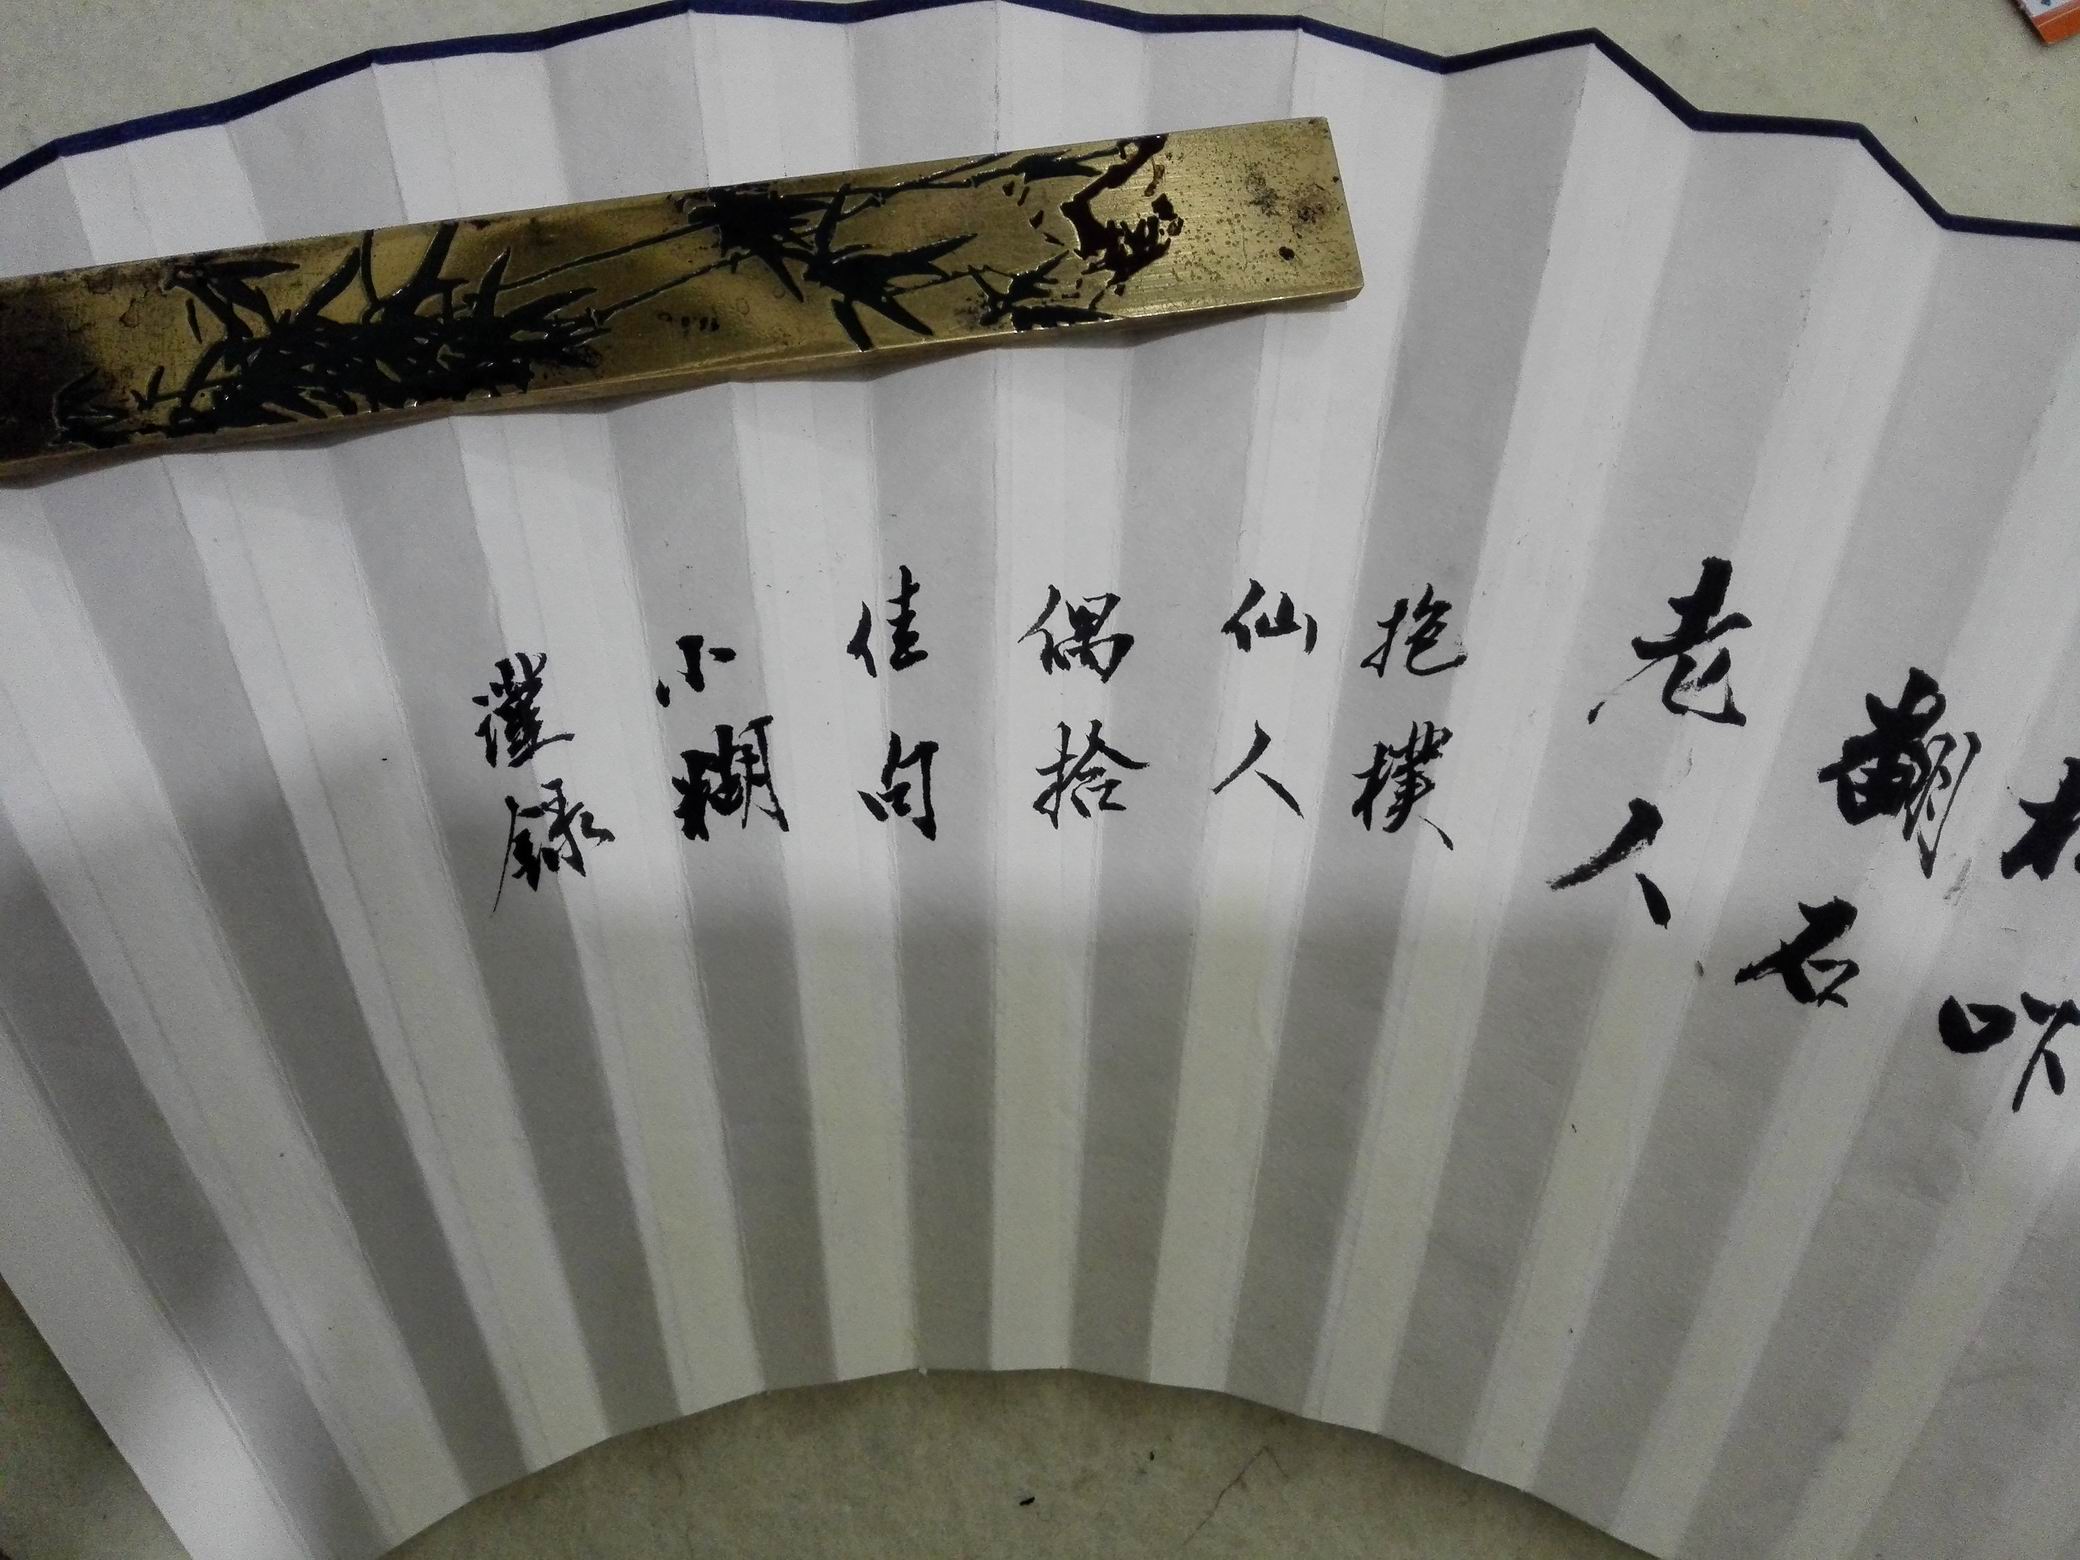 翻石
老人
抱樸
仙人
偶拾
佳句
小糊
謹錄